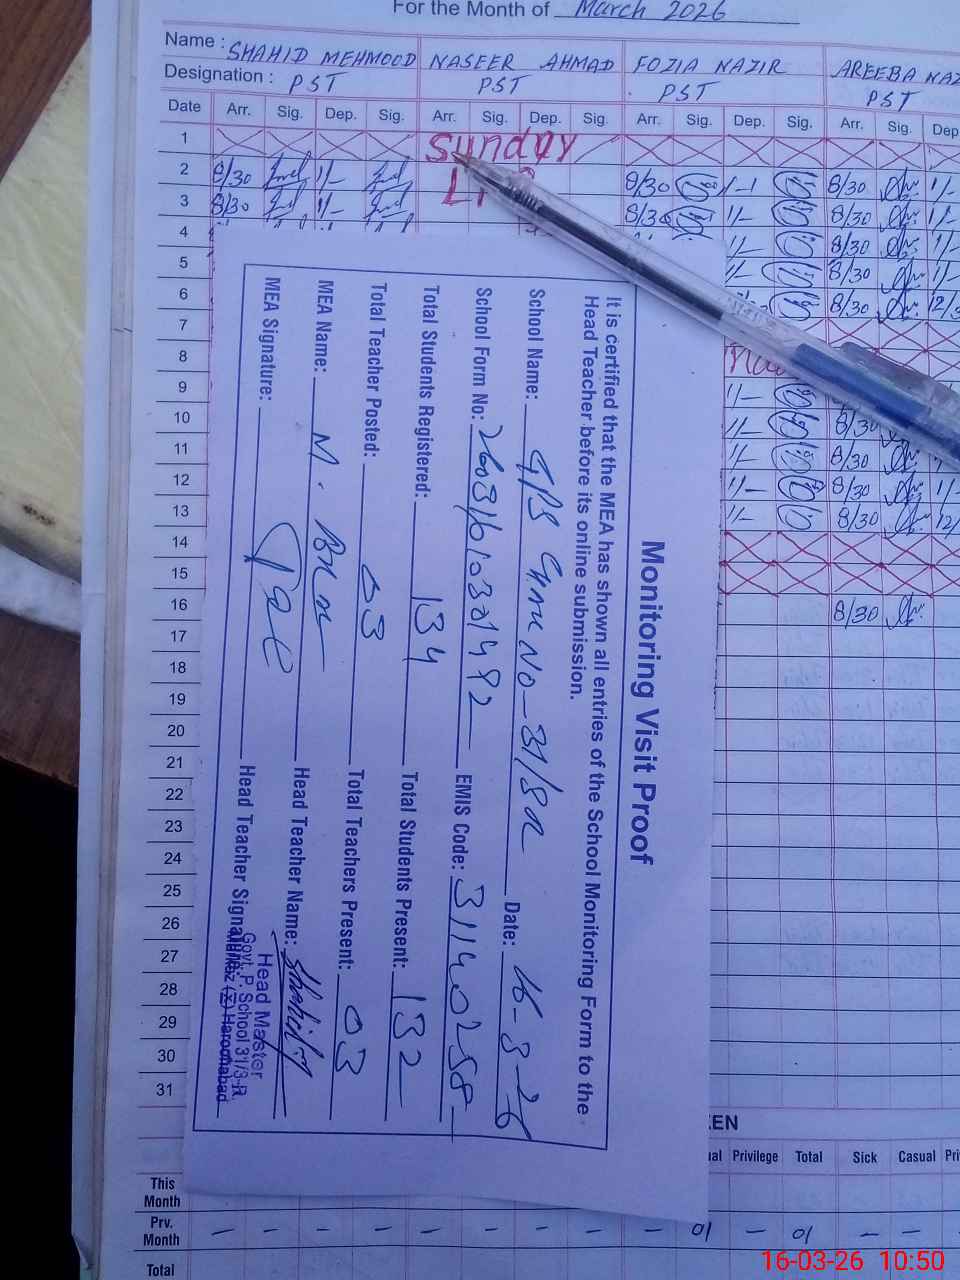 For the Month of March 2026
Name : SHAHID MEHMOOD NASEER AHMAD FOZIA NAZIR AREEBA NAZ
Designation : PST PST PST PST
Date Arr. Sig. Dep. Sig. Arr. Sig. Dep. Sig. Arr. Sig. Dep. Sig. Arr. Sig. Dep
1 Sunday
2 8/30 1/- 8/30 1/- 8/30 1/-
3 8/30 1/- 8/30 1/- 8/30 1/-
4 8/30 1/-
5 1/- 8/30 1/-
6 8/30
7
8
9 1/-
10 1/- 8/30
11 1/- 8/30
12 1/- 8/30 1/-
13 1/- 8/30
14
15
16 8/30
17
18
19
20
21
22
23
24
25
26
27
28
29
30
31
Monitoring Visit Proof
It is certified that the MEA has shown all entries of the School Monitoring Form to the
Head Teacher before its online submission.
School Name: Date: 16-3-26
School Form No: EMIS Code: 31140258
Total Students Registered: 134 Total Students Present: 132
Total Teacher Posted: 03 Total Teachers Present: 03
MEA Name: Head Teacher Name: Shahid
MEA Signature: Head Teacher Signature:
Head Master
Govt. P. School 31/3-R
Haroonabad
Privilege Total Sick Casual Pri
This Month
Prv. Month - - - - - - - - - 01 - 01 - -
Total
16-03-26 10:50